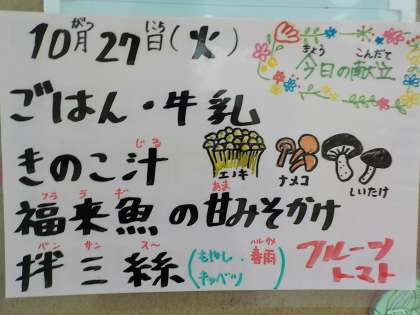 10月27日(火)
がつ にち
今日の献立
きょう こんだて
ごはん・牛乳
きのこ汁
じる
エノキ
ナメコ
しいたけ
福来魚の甘みそかけ
フラ ラ ギ あま
拌三絲(もやし・春雨
バン サン スー ハルサメ
キャベツ)
フルーツ
トマト